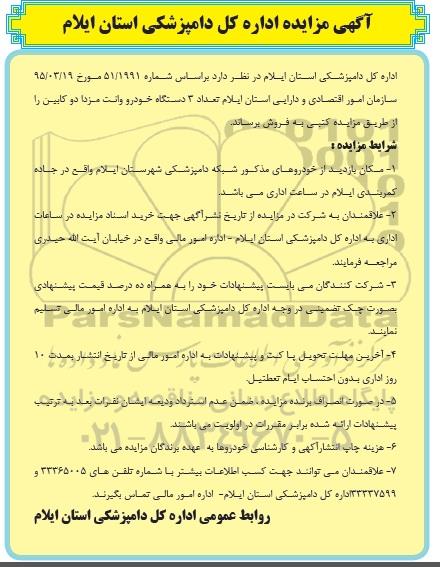 آگهی مزایده اداره کل دامپزشکی استان ایلام
اداره کل دامپزشکی استان ایلام در نظر دارد براساس شماره ۵۱/۱۹۹۱ مورخ ۹۵/۰۳/۱۹
سازمان امور اقتصادی و دارایی استان ایلام تعداد ۳ دستگاه خودرو وانت مزدا دو کابین را
از طریق مزایده کتبی به فروش برساند.
شرایط مزایده :
۱- مکان بازدید از خودروهای مذکور شبکه دامپزشکی شهرستان ایلام واقع در جاده
کمربندی ایلام در ساعت اداری می باشد.
۲- علاقمندان به شرکت در مزایده از تاریخ نشرآگهی جهت خرید اسناد مزایده در ساعات
اداری به اداره کل دامپزشکی استان ایلام - اداره امور مالی واقع در خیابان آیت الله حیدری
مراجعه فرمایند.
۳- شرکت کنندگان می بایست پیشنهادات خود را به همراه ده درصد قیمت پیشنهادی
بصورت چک تضمینی در وجه اداره کل دامپزشکی استان ایلام به اداره امور مالی تسلیم
نمایند.
۴- آخرین مهلت تحویل پاکت و پیشنهادات به اداره امور مالی از تاریخ انتشار بمدت ۱۰
روز اداری بدون احتساب ایام تعطیل.
۵- در صورت انصراف برنده مزایده ، ضمن عدم استرداد ودیعه ایشان نفرات بعد به ترتیب
پیشنهادات ارائه شده برابر مقررات در اولویت می باشند.
۶- هزینه چاپ انتشارآگهی و کارشناسی خودروها به عهده برندگان مزایده می باشد.
۷- علاقمندان می توانند جهت کسب اطلاعات بیشتر با شماره تلفن های ۳۳۳۶۵۰۰۵ و
۳۳۳۳۷۵۹۹اداره کل دامپزشکی استان ایلام- اداره امور مالی تماس بگیرند.
روابط عمومی اداره کل دامپزشکی استان ایلام
ParsNamadData
۰۲۱-۸۸۳۴۹۶۷۰-۵